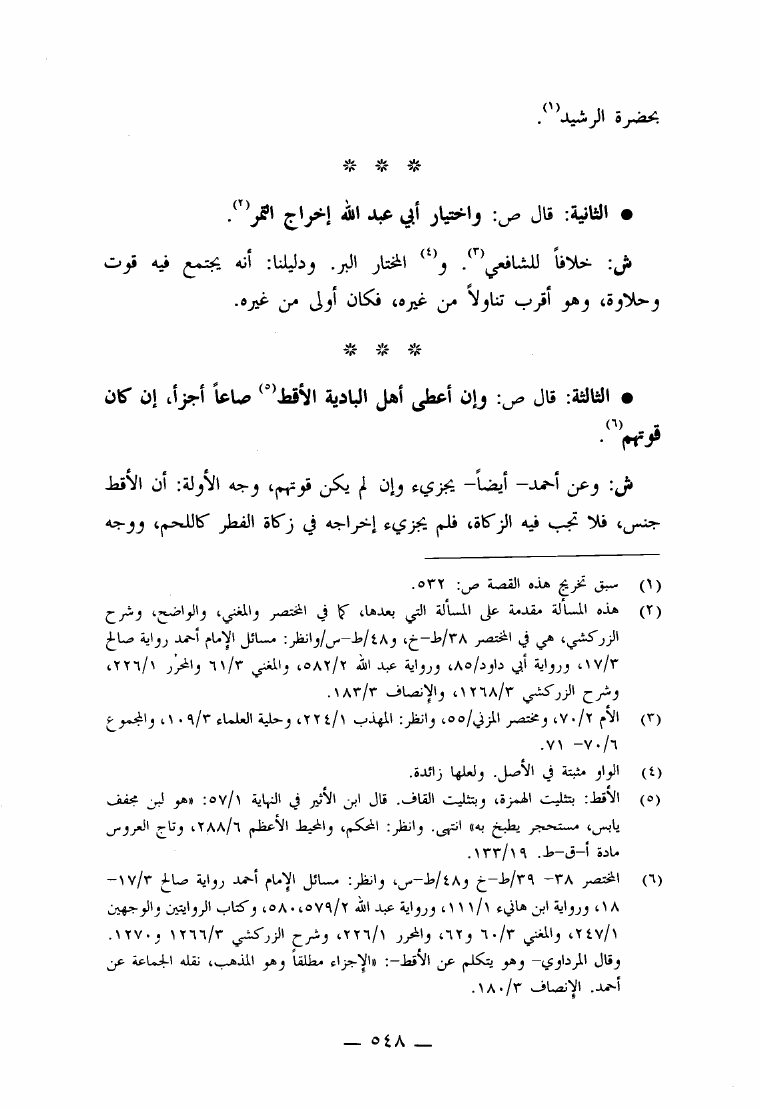 بحضرة الرشيد(١).
* * *
● الثانية: قال ص: واختيار أبي عبد الله إخراج التمر(٢).
ش: خلافاً للشافعي(٣). و(٤) المختار البر. ودليلنا: أنه يجتمع فيه قوت
وحلاوة، وهو أقرب تناولاً من غيره، فكان أولى من غيره.
* * *
● الثالثة: قال ص: وإن أعطى أهل البادية الأقط(٥) صاعاً أجزأ، إن كان
قوتهم(٦).
ش: وعن أحمد- أيضاً- يجزيء وإن لم يكن قوتهم، وجه الأولة: أن الأقط
جنس، فلا تجب فيه الزكاة، فلم يجزيء إخراجه في زكاة الفطر كاللحم، ووجه
(١) سبق تخريج هذه القصة ص: ٥٣٢.
(٢) هذه المسألة مقدمة على المسألة التي بعدها، كما في المختصر والمغني، والواضح، وشرح
الزركشي، هي في المختصر ٣٨/ط-خ، و٤٨/ط-س/وانظر: مسائل الإمام أحمد رواية صالح
١٧/٣، ورواية أبي داود/٨٥، ورواية عبد الله ٥٨٢/٢، والمغني ٦١/٣ والمحرر ٢٢٦/١،
وشرح الزركشي ١٢٦٨/٣، والإنصاف ١٨٣/٣.
(٣) الأم ٧٠/٢، ومختصر المزني/٥٥، وانظر: المهذب ٢٢٤/١، وحلية العلماء ١٠٩/٣، والمجموع
٧٠/٦- ٧١.
(٤) الواو مثبتة في الأصل. ولعلها زائدة.
(٥) الأقط: بتثليت الهمزة، وبتثليت القاف. قال ابن الأثير في النهاية ٥٧/١: «هو لبن مجفف
يابس، مستحجر يطبخ به» انتهى. وانظر: المحكم، والمحيط الأعظم ٢٨٨/٦، وتاج العروس
مادة أ-ق-ط. ١٣٣/١٩.
(٦) المختصر ٣٨- ٣٩/ط-خ و٤٨/ط-س، وانظر: مسائل الإمام أحمد رواية صالح ١٧/٣-
١٨، ورواية ابن هانيء ١١١/١، ورواية عبد الله ٥٧٩/٢،٥٨٠، وكتاب الروايتين والوجهين
٢٤٧/١، والمغني ٦٠/٣ و٦٢، والمحرر ٢٢٦/١، وشرح الزركشي ١٢٦٦/٣ و١٢٧٠.
وقال المرداوي- وهو يتكلم عن الأقط-: «الإجزاء مطلقاً وهو المذهب، نقله الجماعة عن
أحمد. الإنصاف ١٨٠/٣.
— ٥٤٨ —